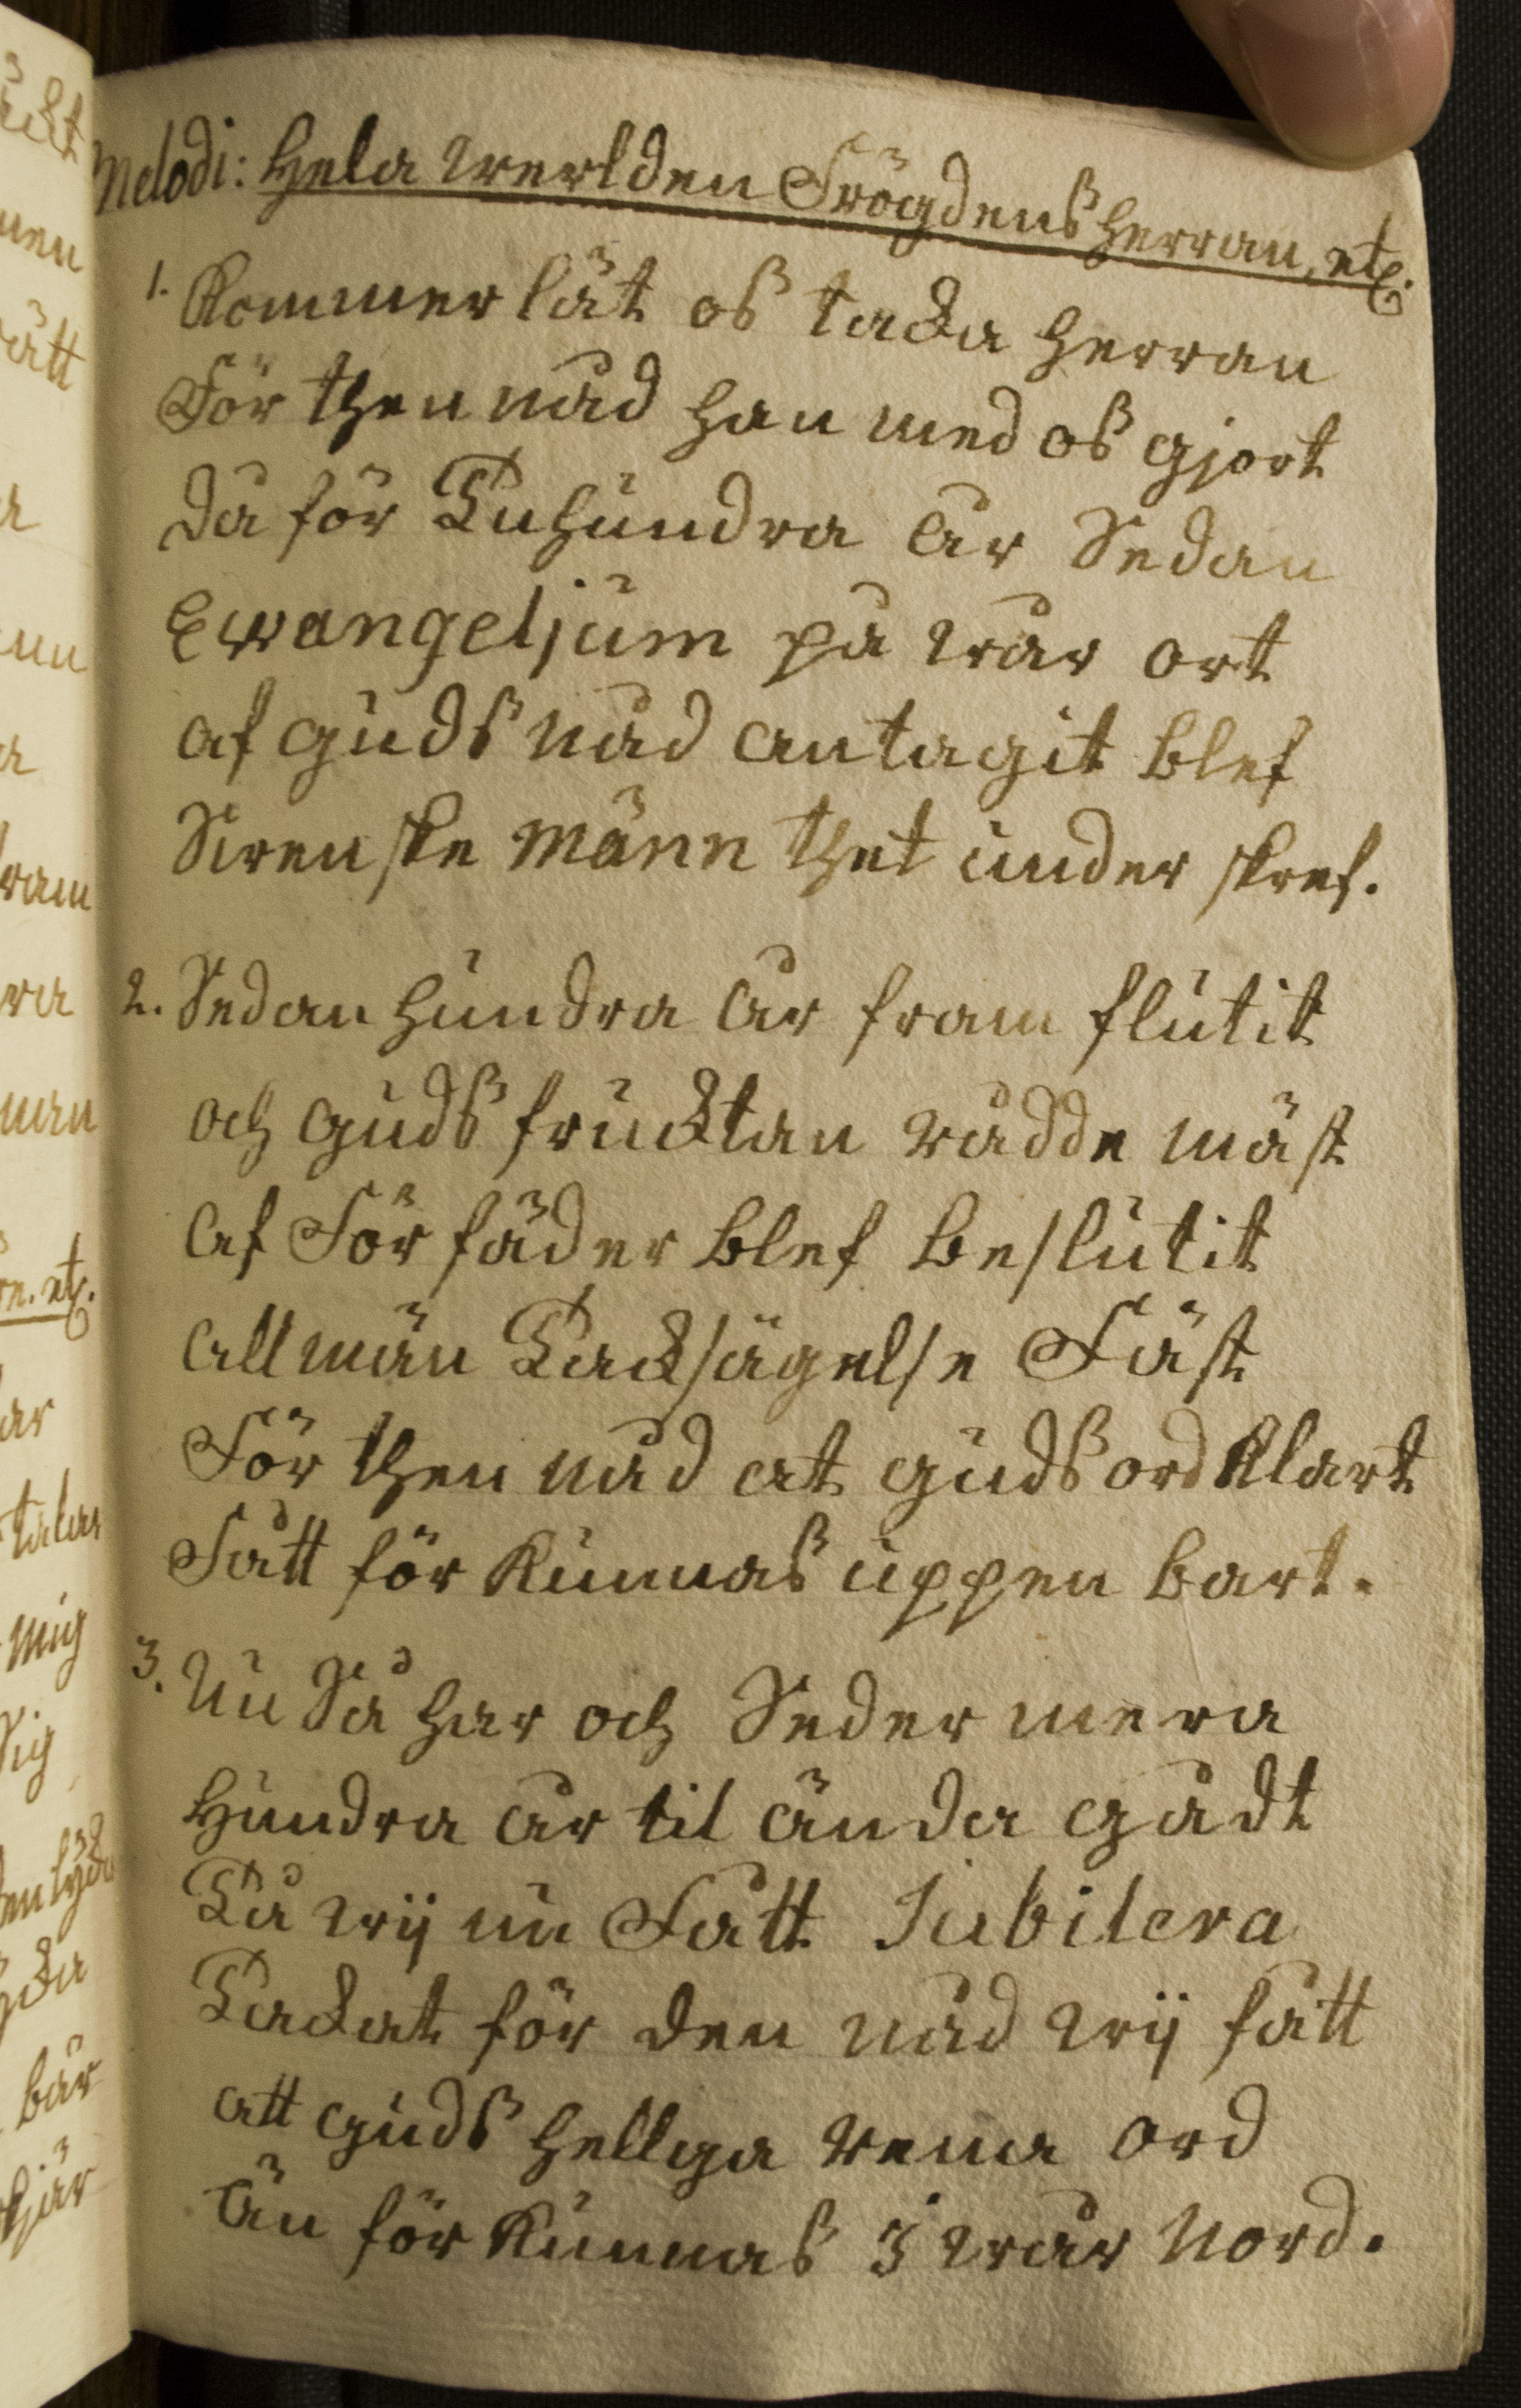 Melodi: Hela werlden Frögdens Herran, etc.
1. Kommer lät oß tacka Herran
För then nåd han med oß gjort
Då för Tuhundra år Sedan
Ewangeljum på wår ort
af guds nåd antagit blef
Swenske männ thet under skref.
2. Sedan hundra år fram flutit
och guds frucktan rådde mäst
af För fäder blef beslutit
allmän Tacksägelse Fäst
För then nåd at guds ord klart
Fått för kunnas uppen bart.
3. Nu Så har och Seder mera
Hundra år til ända gådt
Få wij nu Fått Jubilera
Tackat för den nåd wij fått
att guds hellga rena ord
än för kunnas i wår Nord.